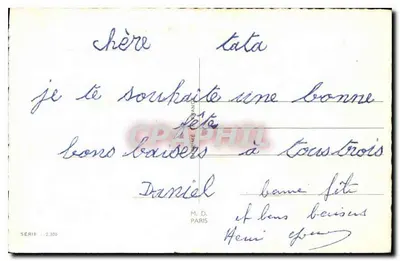 chère tata
je te souhaite une bonne
fête
bons baisers à tous trois
Daniel
bonne fête
et bons baisers
Henri
M. D.
PARIS
CARTAPHIL